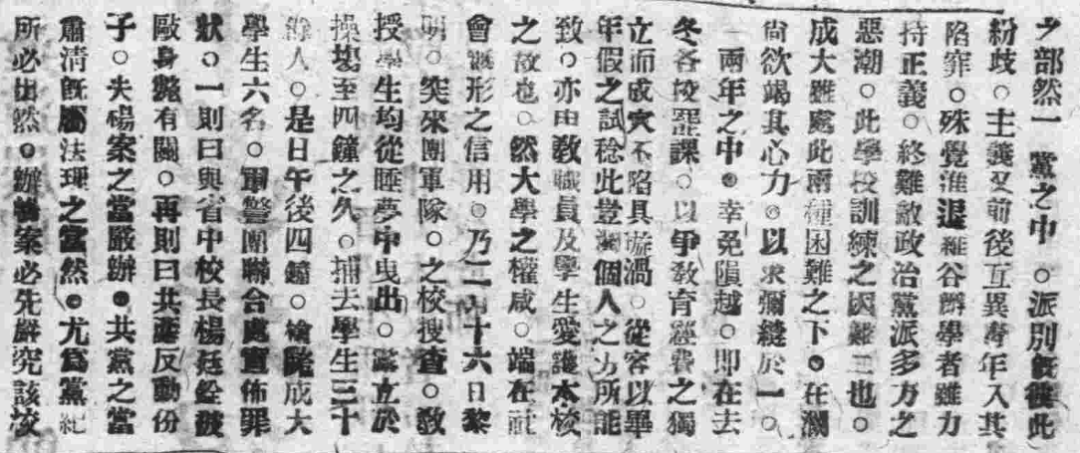 之部然一黨之中。派別旣復此
紛歧。主義又前後互異靑年入其
陷穽。殊覺進退維谷辦學者雖力
持正義。終難敵政治黨派多方之
惡潮。此學校訓練之困難二也。
成大雖處此兩種困難之下。在瀾
尙欲竭其心力。以求彌縫於一。
兩年之中。幸免隕越。即在去
冬各校罷課。以爭敎育經費之獨
立而成大不陷具漩渦。從容以畢
年假之試稔此豈瀾個人之力所能
致。亦由敎職員及學生愛護本校
之故也。然大學之權威。端在社
會形之信用。乃二月十六日黎
明。突來團軍隊。之校搜查。敎
授學生均從睡夢中曳出。露立於
操塲至四鐘之久。捕去學生三十
餘人。是日午後四鐘。槍斃成大
學生六名。軍警團聯合處宣佈罪
狀。一則曰與省中校長楊廷銓被
毆身斃有關。再則曰共產反動份
子。夫楊案之當嚴辦。共黨之當
肅清旣屬法理之當然。尤爲黨紀
所必出然。辦楊案必先嚴究該校